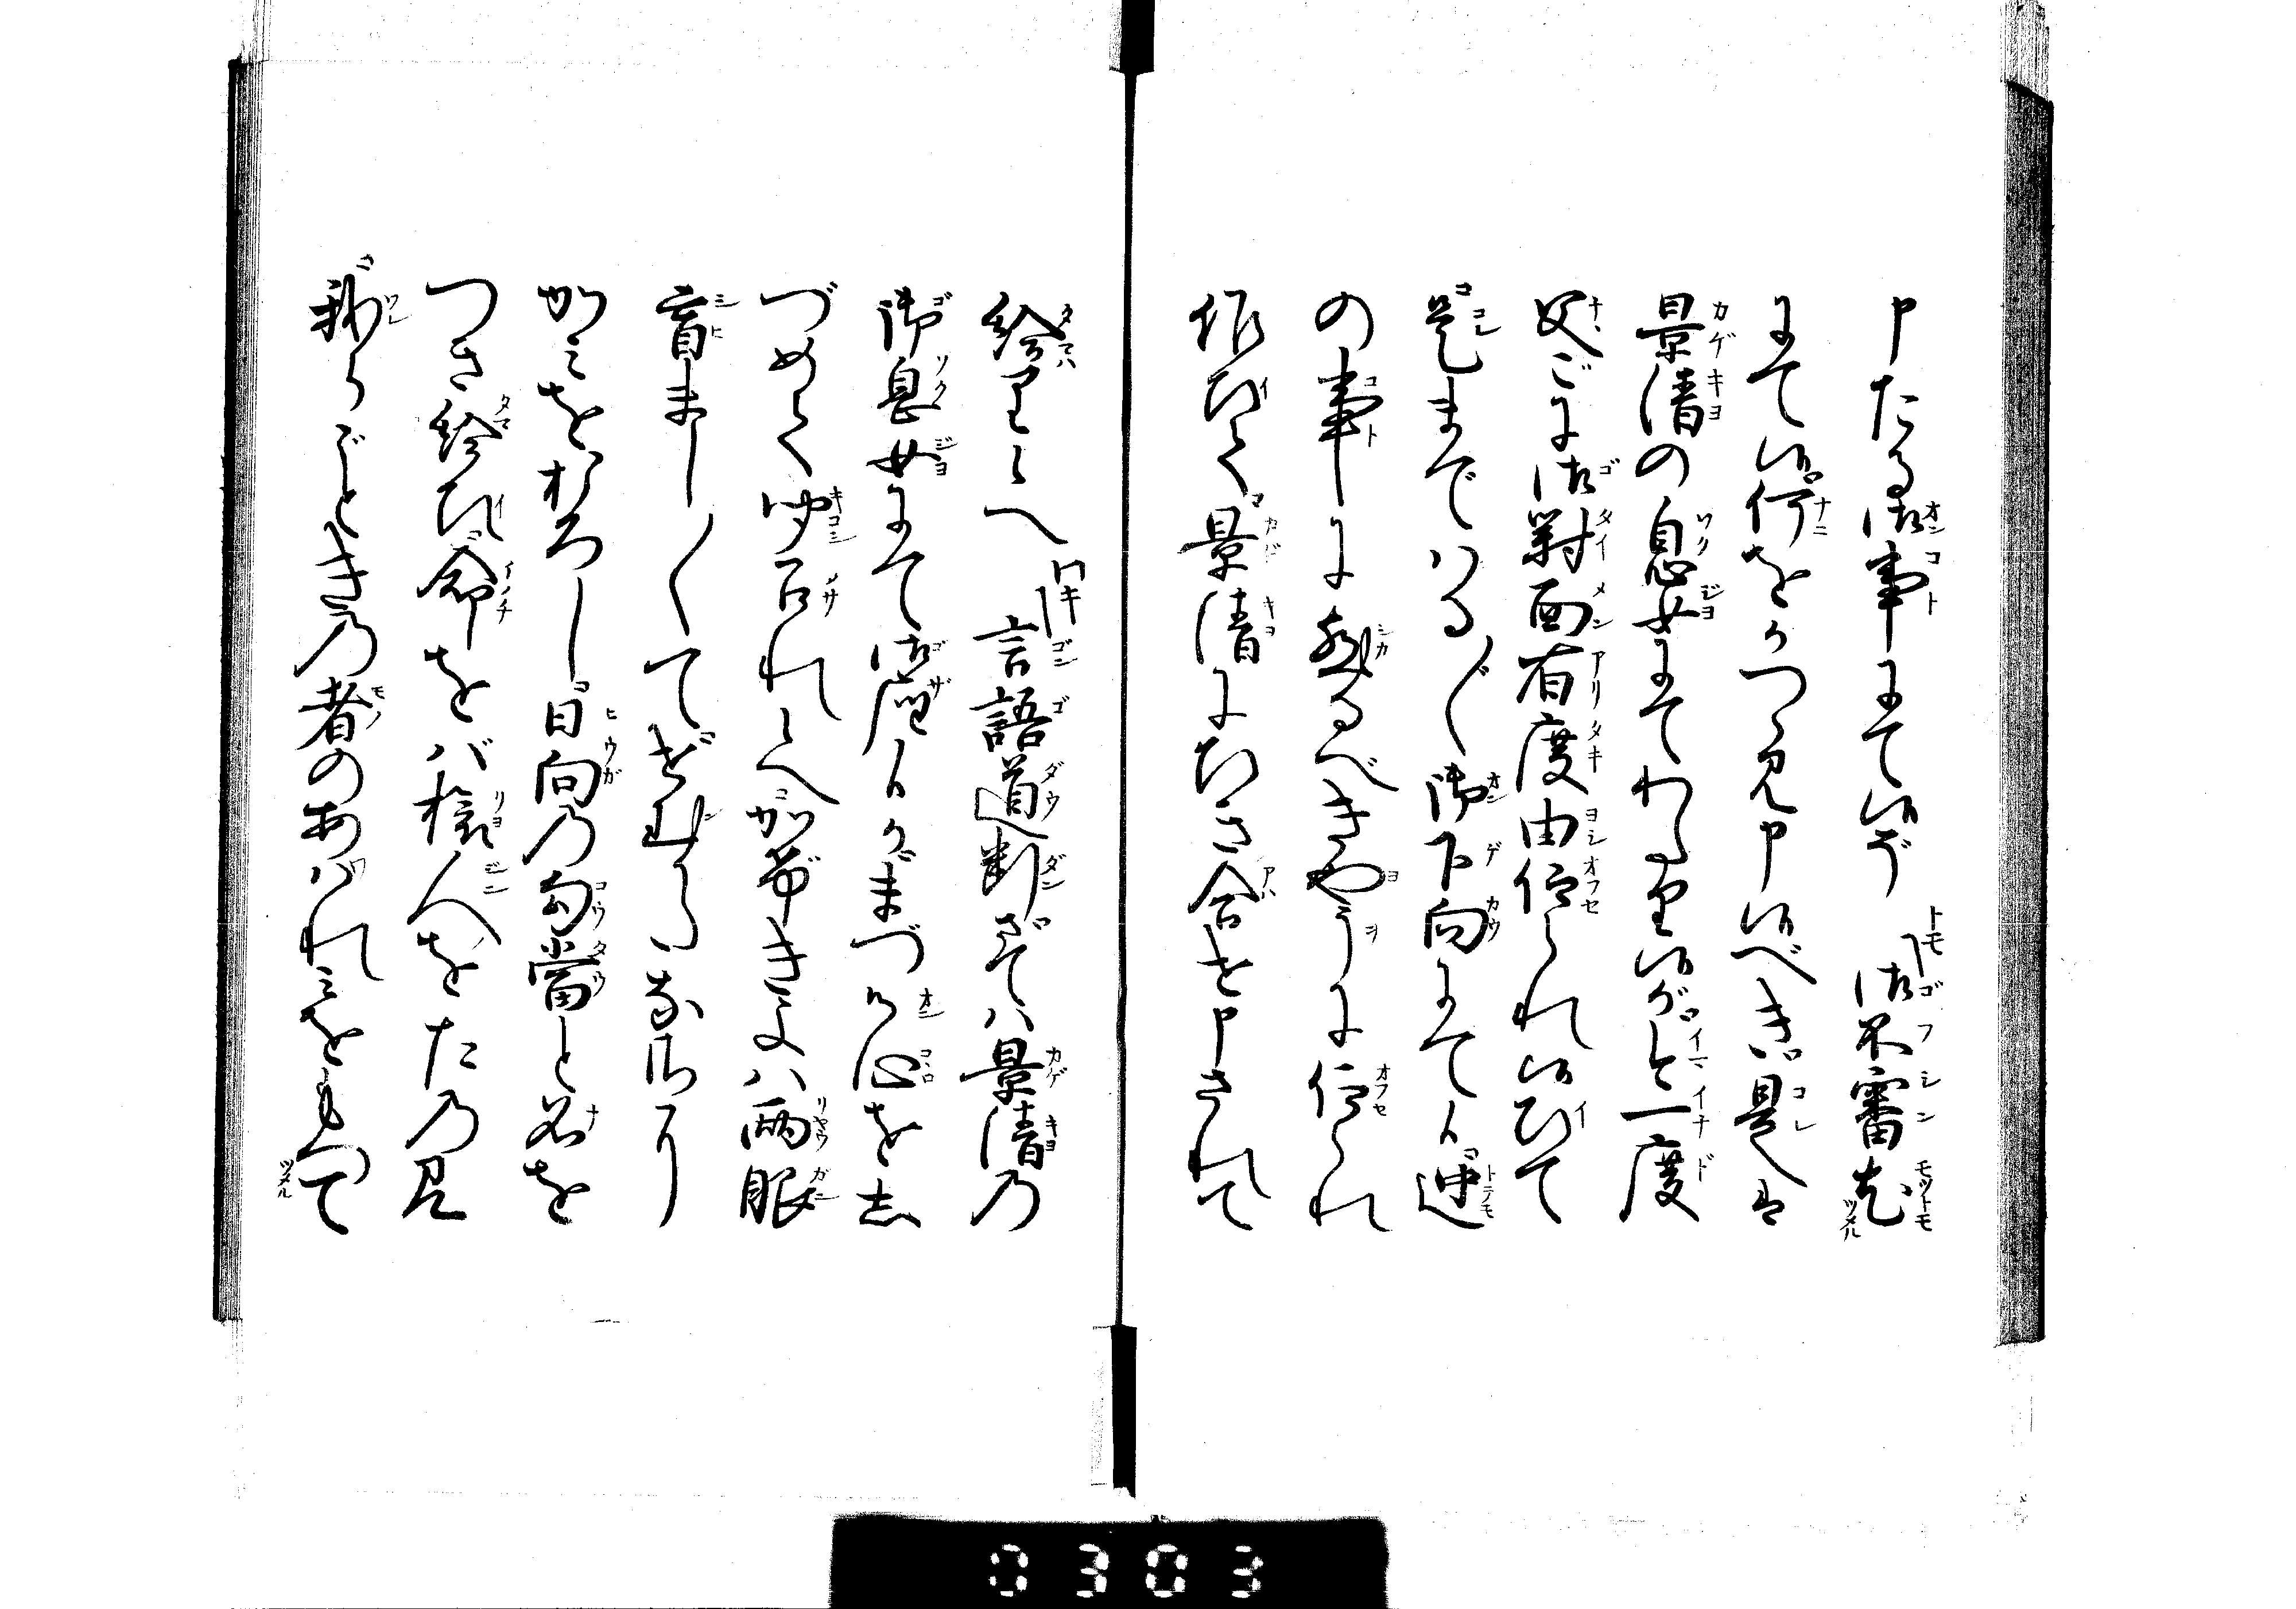 申たる御事にて候ぞ トモ 御不審尤
にて候何をかつゝみ申候べき是は
景清の息女にてわたり候が今一度
父ごに御對面有度由仰られ候ひて
是まではる〴〵御下向にて候迚
の事に然るべきやうに仰られ
候ひて景清に引合せ申されて
給はり候へ ワキ 言語道断さては景清の
御息女にて御座候かまづ御心をし
づめて聞召れ候へ景清は両眼
盲ましまして せむかたなさに
かみをおろし日向の勾當と名を
つき給ひ命をば旅人をたのみ
我らごとき乃者のあはれみをもつて